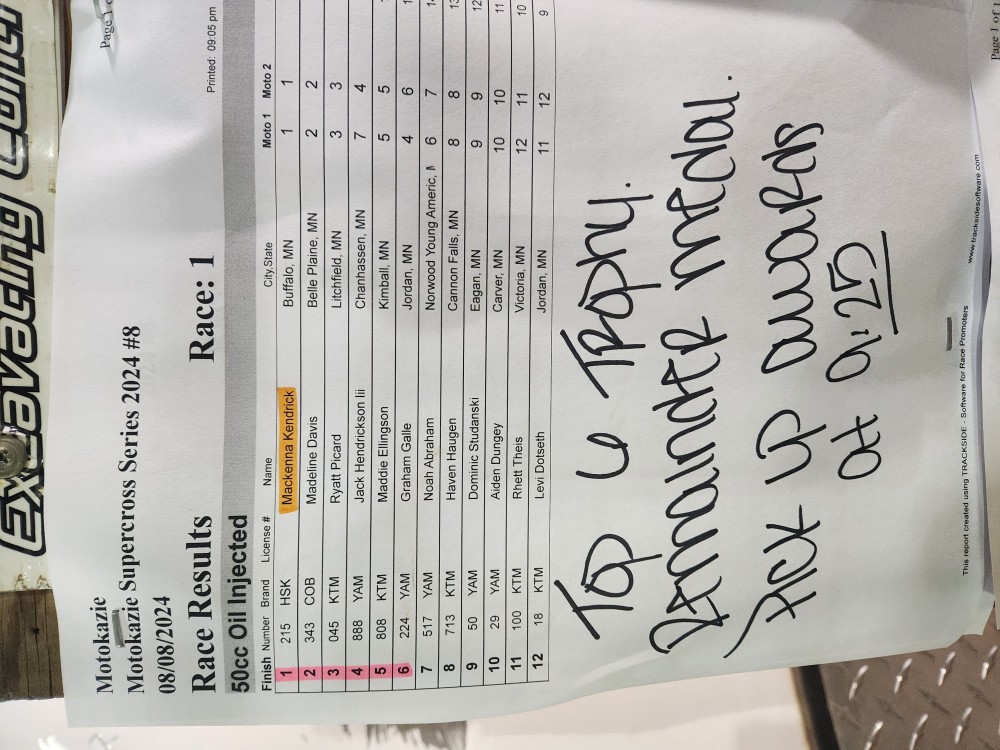 Excavating
Page 1 of
Motokazie
Motokazie Supercross Series 2024 #8
08/08/2024 Printed: 09:05 pm
Race Results Race: 1
50cc Oil Injected
Finish Number Brand License # Name City,State Moto 1 Moto 2
1 215 HSK Mackenna Kendrick Buffalo, MN 1 1
2 343 COB Madeline Davis Belle Plaine, MN 2 2
3 045 KTM Ryatt Picard Litchfield, MN 3 3
4 888 YAM Jack Hendrickson Iii Chanhassen, MN 7 4
5 808 KTM Maddie Ellingson Kimball, MN 5 5
6 224 YAM Graham Galle Jordan, MN 4 6
7 517 YAM Noah Abraham Norwood Young Americ, M 6 7
8 713 KTM Haven Haugen Cannon Falls, MN 8 8 13
9 50 YAM Dominic Studanski Eagan, MN 9 9 12
10 29 YAM Aiden Dungey Carver, MN 10 10 11
11 100 KTM Rhett Theis Victoria, MN 12 11 10
12 18 KTM Levi Dotseth Jordan, MN 11 12 9
Top 6 Trophy.
Remainder medal.
Pick up awards
at 9:25
This report created using TRACKSIDE - Software for Race Promoters www.tracksidesoftware.com
Page 1 of 1